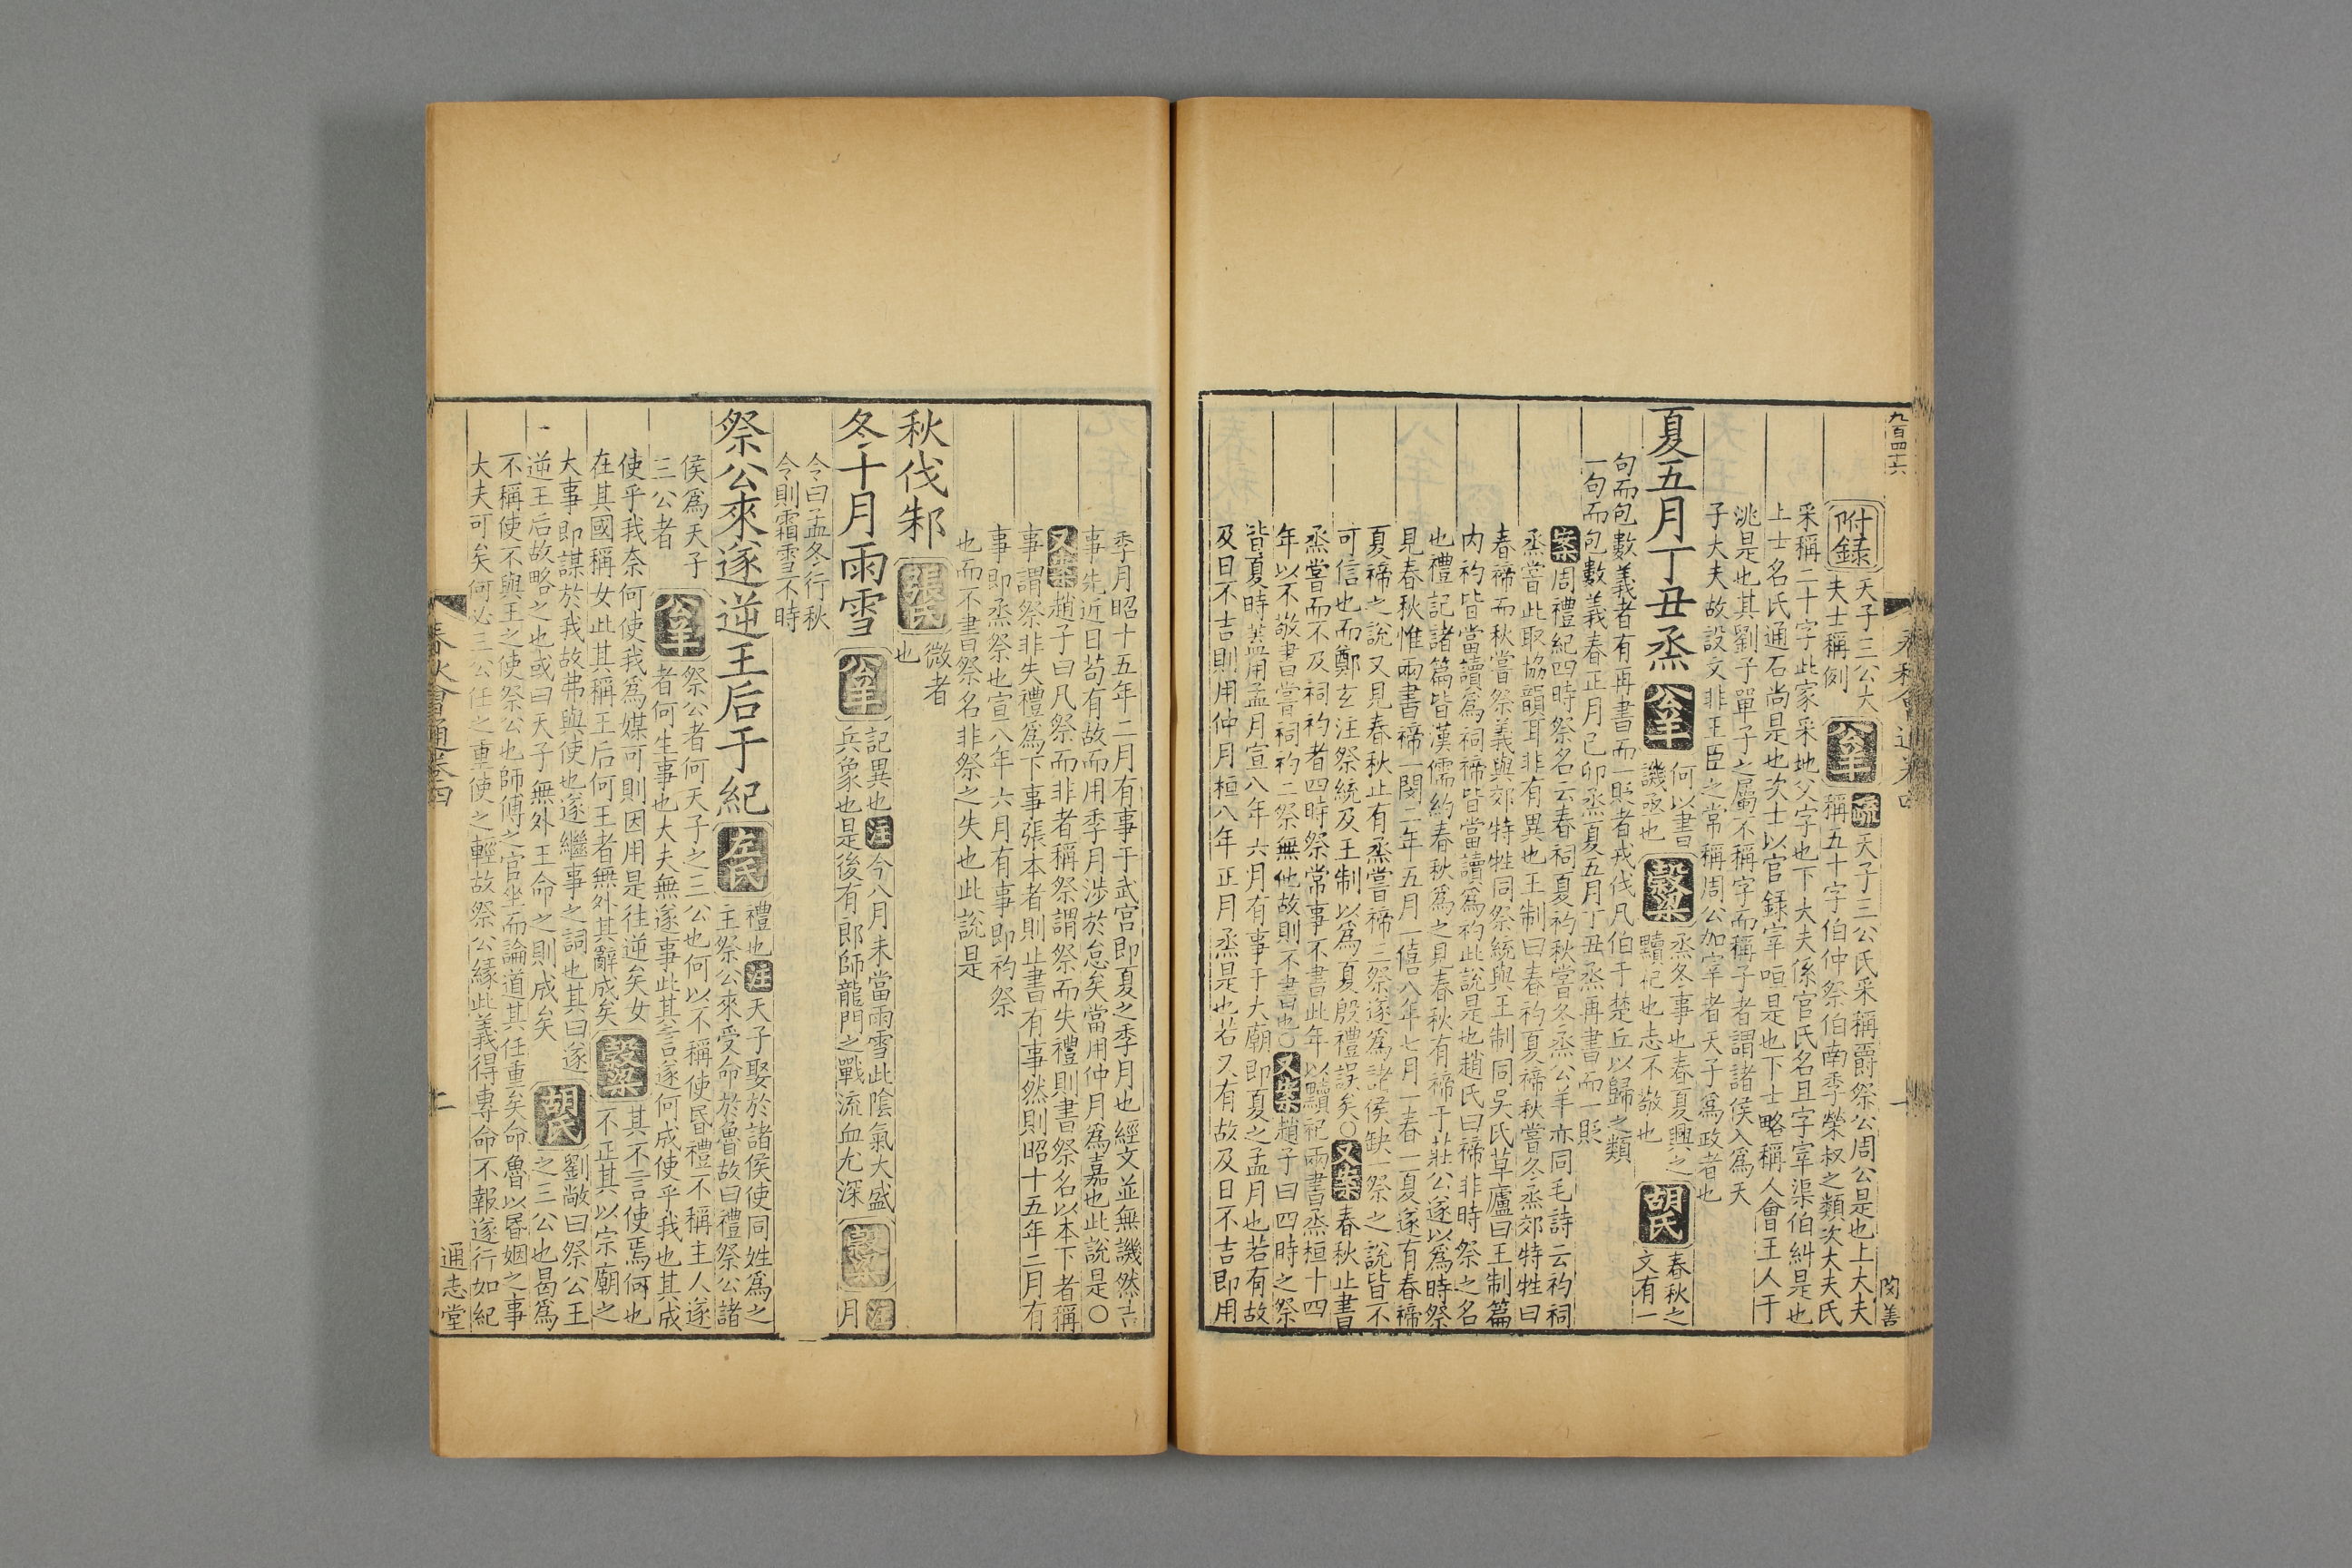 九百四十六 閔善
附録 天子三公大
夫士稱例
公羊 疏 天子三公氏采稱爵祭公周公是也上大夫
稱五十字伯仲祭伯南季榮叔之類次大夫氏
采稱二十字此家采地父字也下大夫係官氏名且字宰渠伯糾是也
上士名氏通石尚是也次士以官録宰咺是也下士略稱人會王人于
洮是也其劉子單子之屬不稱字而稱子者謂諸侯入爲天
子大夫故設文非王臣之常稱周公加宰者天子爲政者也
夏五月丁丑烝 公羊 何以書
譏亟也
穀梁 烝冬事也春夏興之
黷祀也志不敬也
胡氏 春秋之
文有一
句而包數義者有再書而一貶者戎伐凡伯于楚丘以歸之類
一句而包數義春正月已卯烝夏五月丁丑烝再書而一貶
案周禮紀四時祭名云春祠夏礿秋嘗冬烝公羊亦同毛詩云礿祠
烝嘗此取協韻耳非有異也王制曰春礿夏禘秋嘗冬烝郊特牲曰
春禘而秋嘗祭義與郊特牲同祭統與王制同吳氏草廬曰王制篇
内礿皆當讀爲祠禘皆當讀爲礿此說是也趙氏曰禘非時祭之名
也禮記諸篇皆漢儒約春秋爲之見春秋有禘于莊公遂以爲時祭
見春秋惟兩書禘一閔二年五月一僖八年七月一春一夏遂有春禘
夏禘之說又見春秋止有烝嘗禘三祭遂爲諸侯缺一祭之說皆不
可信也而鄭玄注祭統及王制以爲夏殷禮誤矣〇又案春秋止書
烝嘗而不及祠礿者四時祭常事不書此年以黷祀兩書烝桓十四
年以不敬書嘗祠礿二祭無他故則不書也〇又案趙子曰四時之祭
皆夏時蓋用孟月宣八年六月有事于大廟即夏之孟月也若有故
及日不吉則用仲月桓八年正月烝是也若又有故及日不吉即用
季月昭十五年二月有事于武宮即夏之季月也經文並無譏然吉
事先近日苟有故而用季月涉於怠矣當用仲月爲嘉也此說是〇
又案趙子曰凡祭而非者稱祭謂祭而失禮則書祭名以本下者稱
事謂祭非失禮爲下事張本者則止書有事然則昭十五年二月有
事即烝祭也宣八年六月有事即礿祭
也而不書祭名非祭之失也此說是
秋伐邾 張氏 微者
也
冬十月雨雪 公羊 記異也注今八月未當雨雪此陰氣大盛
兵象也是後有郎師龍門之戰流血尤深
穀梁 注
月
令曰孟冬行秋
令則霜雪不時
祭公來遂逆王后于紀 左氏 禮也注天子娶於諸侯使同姓爲之
主祭公來受命於魯故曰禮祭公諸
侯爲天子
三公者
公羊 祭公者何天子之三公也何以不稱使昏禮不稱主人遂
者何生事也大夫無遂事此其言遂何成使乎我也其成
使乎我奈何使我爲媒可則因用是往逆矣女
在其國稱女此其稱王后何王者無外其辭成矣
穀梁 其不言使焉何也
不正其以宗廟之
大事即謀於我故弗與使也遂繼事之詞也其曰遂
逆王后故略之也或曰天子無外王命之則成矣
胡氏 劉敞曰祭公王
之三公也曷爲
不稱使不與王之使祭公也師傅之官坐而論道其任重矣命魯以昏姻之事
大夫可矣何必三公任之重使之輕故祭公緣此義得專命不報遂行如紀
春秋會通卷四 二 通志堂